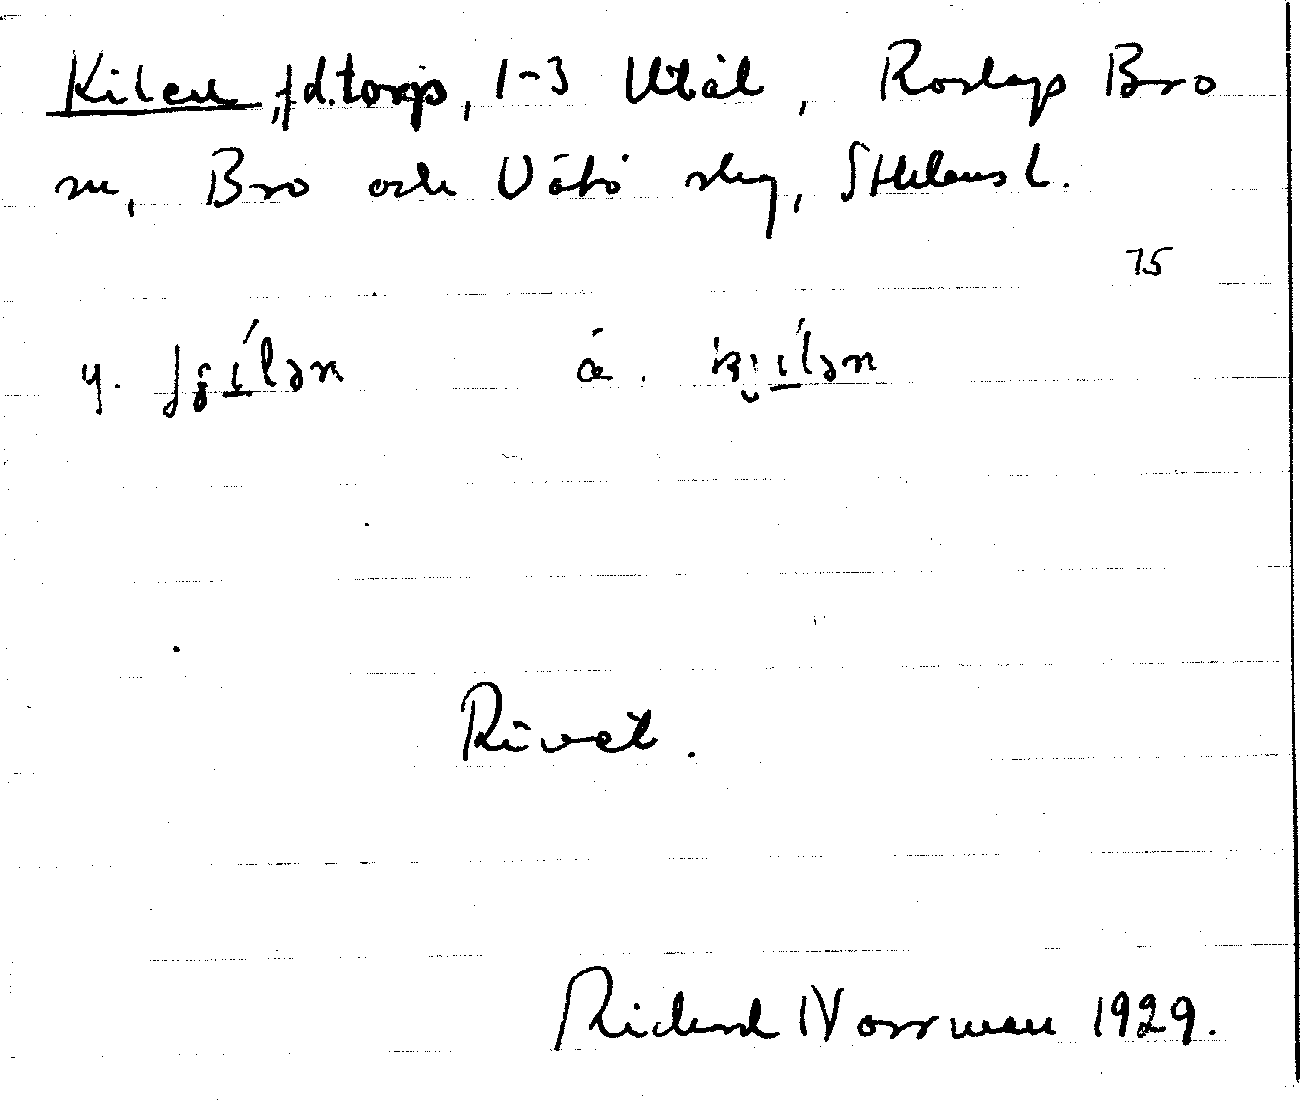 Kilen, f.d. torp, 1-3 Utål, Roslags Bro
sn, Bro och Vätö skg, Sthlms l.
75
y. ʃjílən á. kjílən
Rivet.
Richard Norrman 1929.